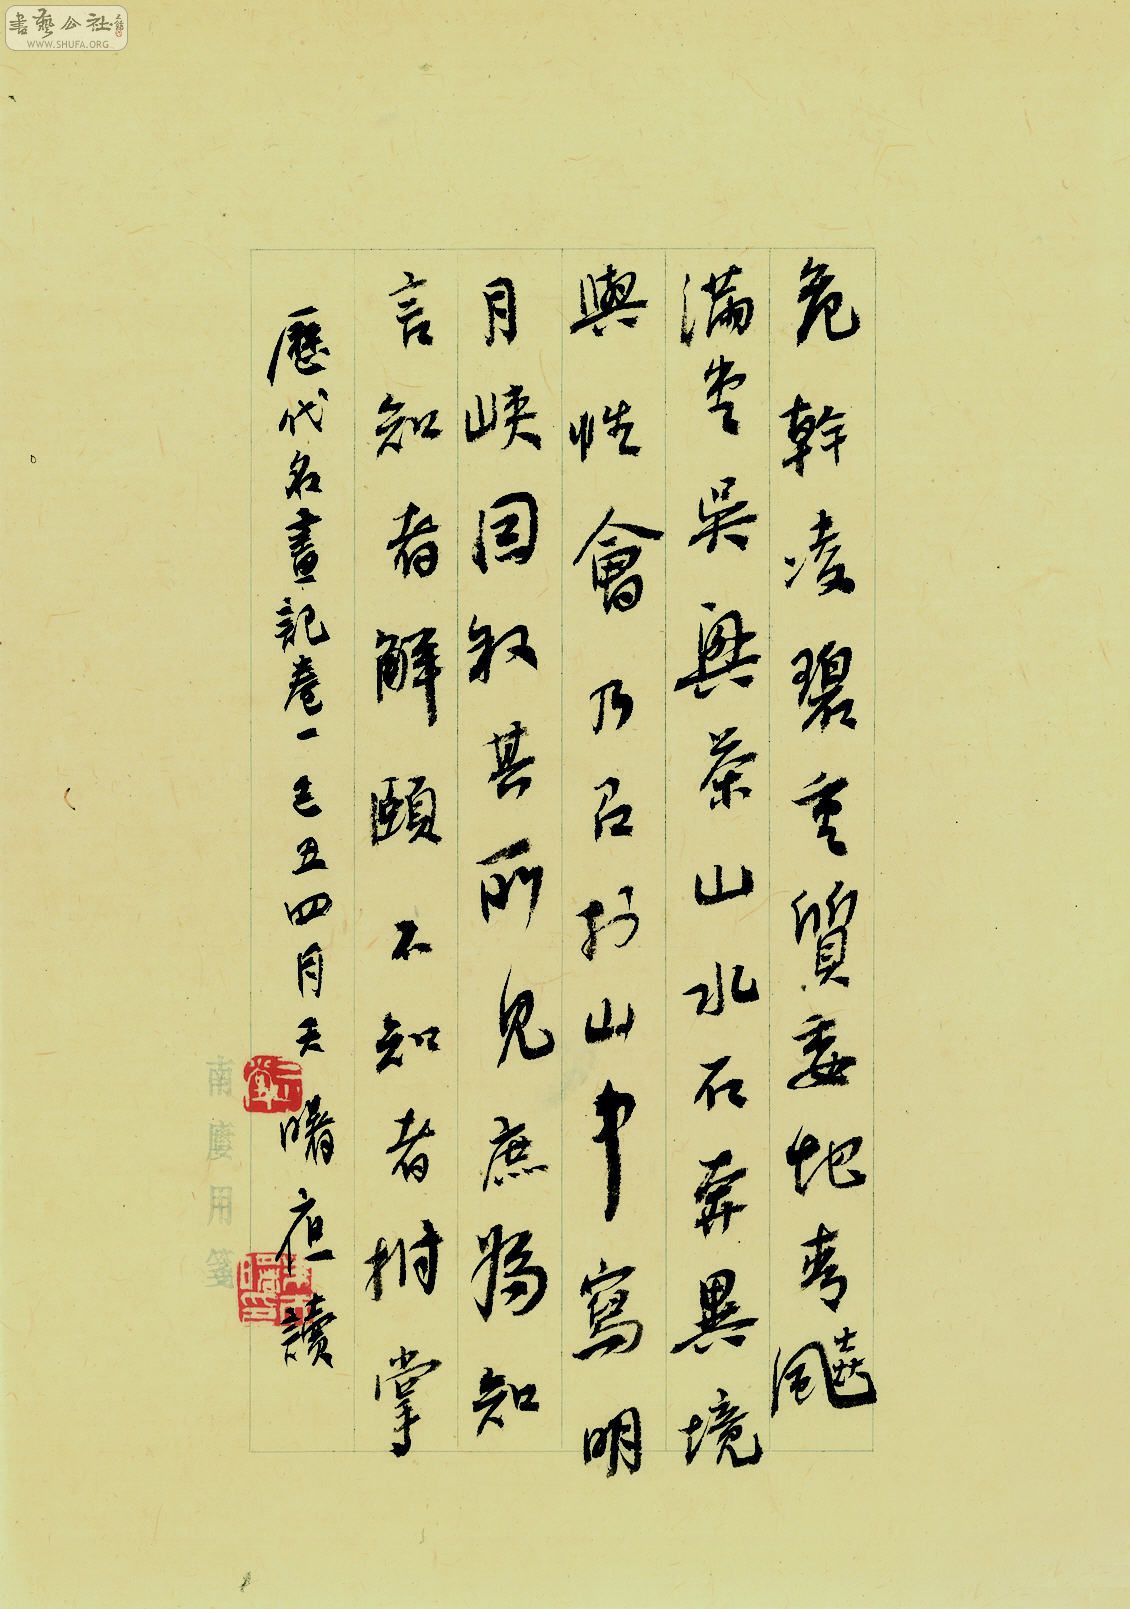 書藝公社
WWW.SHUFA.ORG
危幹凌碧重質委地青飈
滿堂吳興茶山水石奔異境
與性會乃召於山中寫明
月峽因敘其所見庶為知
言知者解頤不知者拊掌
歷代名畫記卷一己丑四月天曙夜讀
南廔用箋